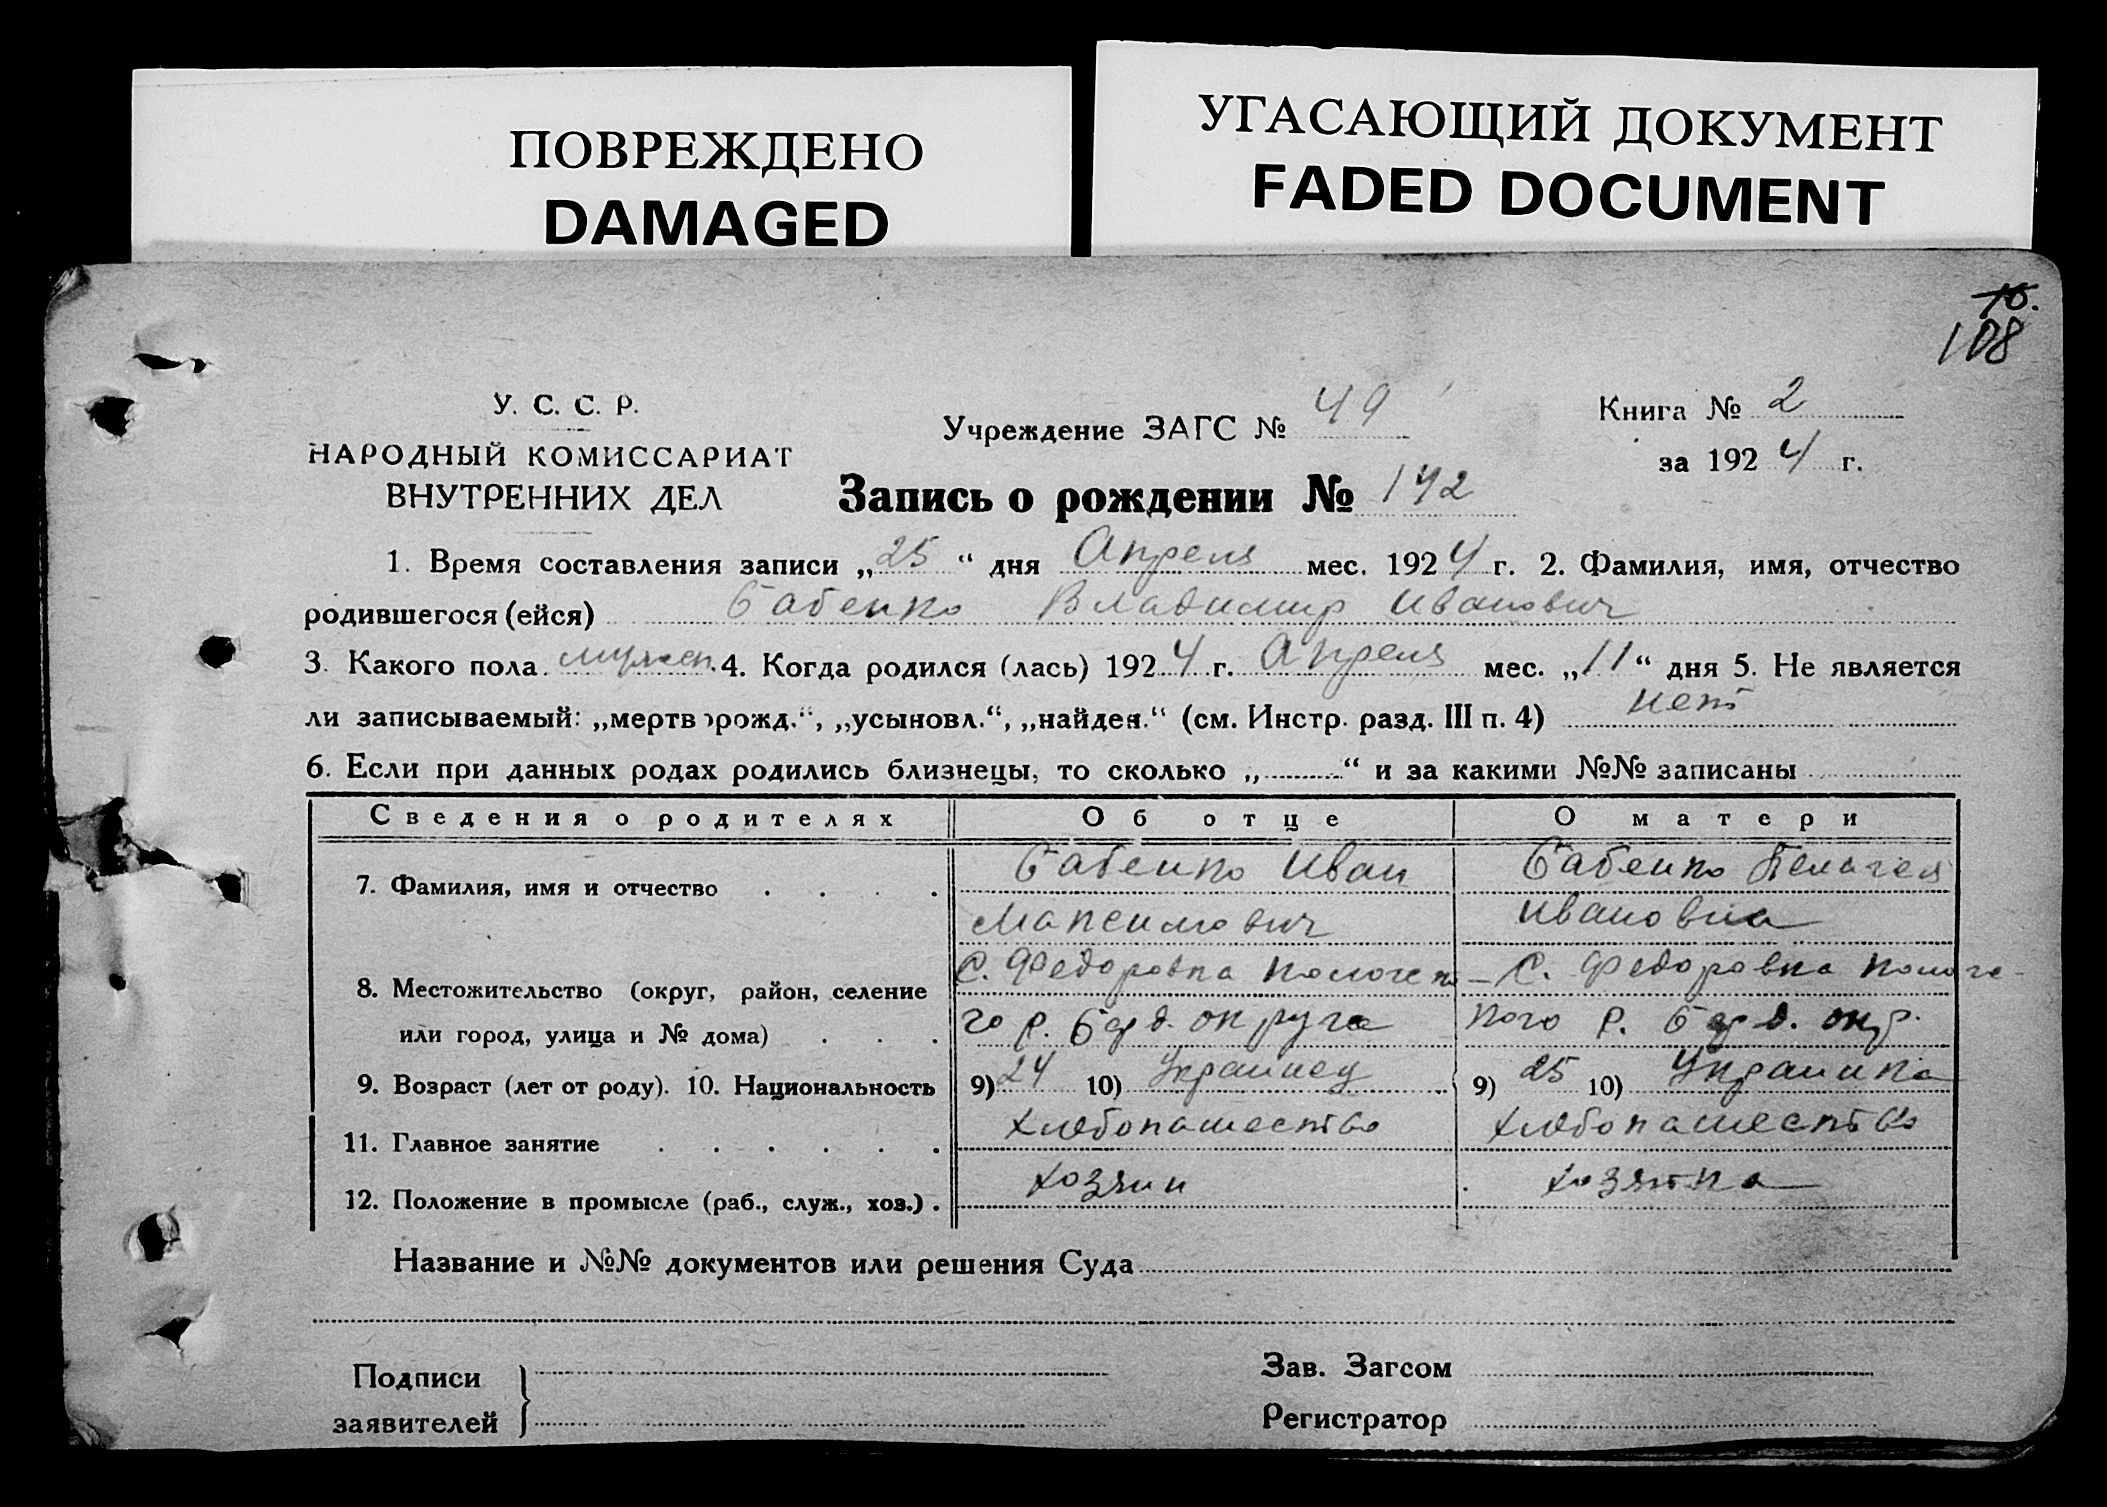 ПОВРЕЖДЕНО
DAMAGED
УГАСАЮЩИЙ ДОКУМЕНТ
FADED DOCUMENT
108
У. С. С. Р.
НАРОДНЫЙ КОМИССАРИАТ
ВНУТРЕННИХ ДЕЛ
Учреждение ЗАГС № 49
Книга № 2
за 1924 г.
Запись о рождении № 142
1. Время составления записи „25“ дня Апреля мес. 1924 г. 2. Фамилия, имя, отчество
родившегося (ейся) Бабенко Владимир Иванович
3. Какого пола мужск. 4. Когда родился (лась) 1924 г. Апреля мес. „11“ дня 5. Не является
ли записываемый: „мертворожд.“, „усыновл.“, „найден.“ (см. Инстр. разд. III п. 4) нет
6. Если при данных родах родились близнецы, то сколько „ “ и за какими №№ записаны
Сведения о родителях Об отце О матери
7. Фамилия, имя и отчество . . . . Бабенко Иван Бабенко Пелагея
Максимович Ивановна
8. Местожительство (округ, район, селение С. Федоровка Пологско- С. Федоровка Пологс-
или город, улица и № дома) . . . го р. Берд. округа кого р. Берд. окр.
9. Возраст (лет от роду). 10. Национальность 9) 24 10) Украинец 9) 25 10) Украинка
11. Главное занятие . . . . . . Хлебопашество Хлебопашество
12. Положение в промысле (раб., служ., хоз.) . Хозяин Хозяйка
Название и №№ документов или решения Суда
Подписи
заявителей
Зав. Загсом
Регистратор